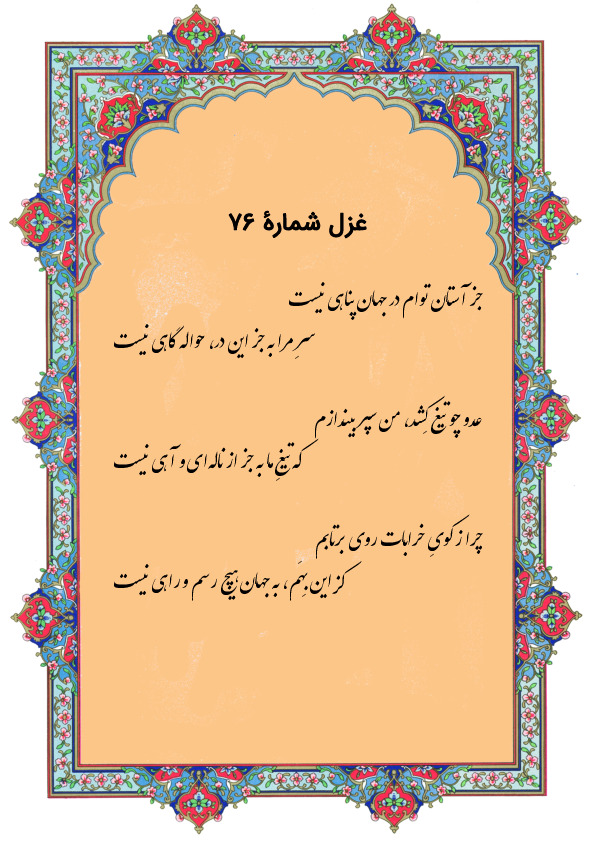 غزل شمارهٔ ۷۶
جز آستان توام در جهان پناهی نیست
سرِ مرا به جز این در، حواله گاهی نیست
عدو چو تیغ کِشد، من سپر بیندازم
که تیغِ ما به جز از ناله‌ای و آهی نیست
چرا ز کویِ خرابات روی برتابم
کز این بِهَم، به جهان هیچ رسم و راهی نیست